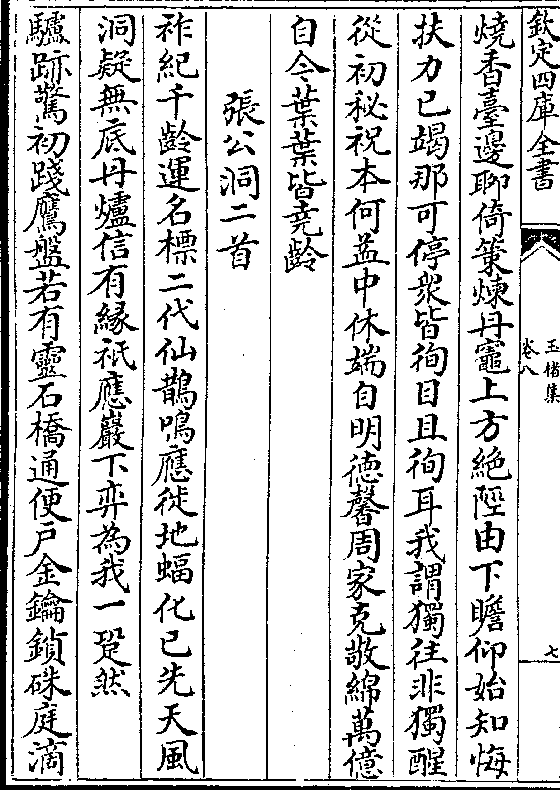 欽定四庫全書
玉楮集
卷八
七
燒香臺邊聊倚䇿煉丹竈上方絶陘由下瞻仰始知悔
扶力已竭那可停衆皆徇目且徇耳我謂獨往非獨醒
從初秘祝本何益中休端自明德馨周家克敬綿萬億
自今葉葉皆堯齡
張公洞二首
祚紀千齡運名標二代仙鵲鳴應徙地蝠化已先天風
洞疑無底丹爐信有縁祇應巖下弈為我一跫然
驢跡驚初踐鷹盤若有靈石橋通便户金鑰鎖硃庭滴